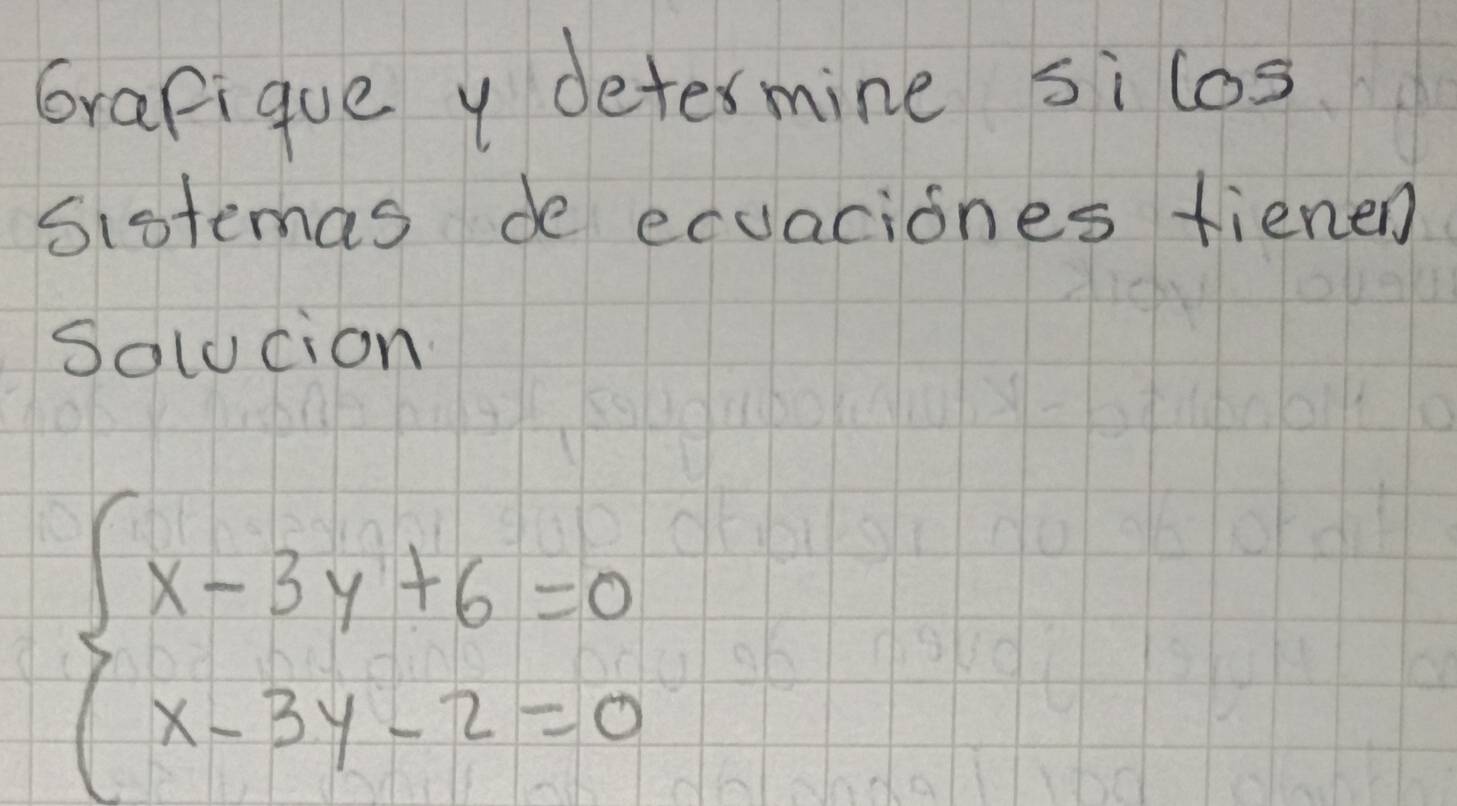 Grafique y determine si los
sistemas de ecuaciónes tienen
solucion
x - 3y + 6 = 0
x - 3y - 2 = 0